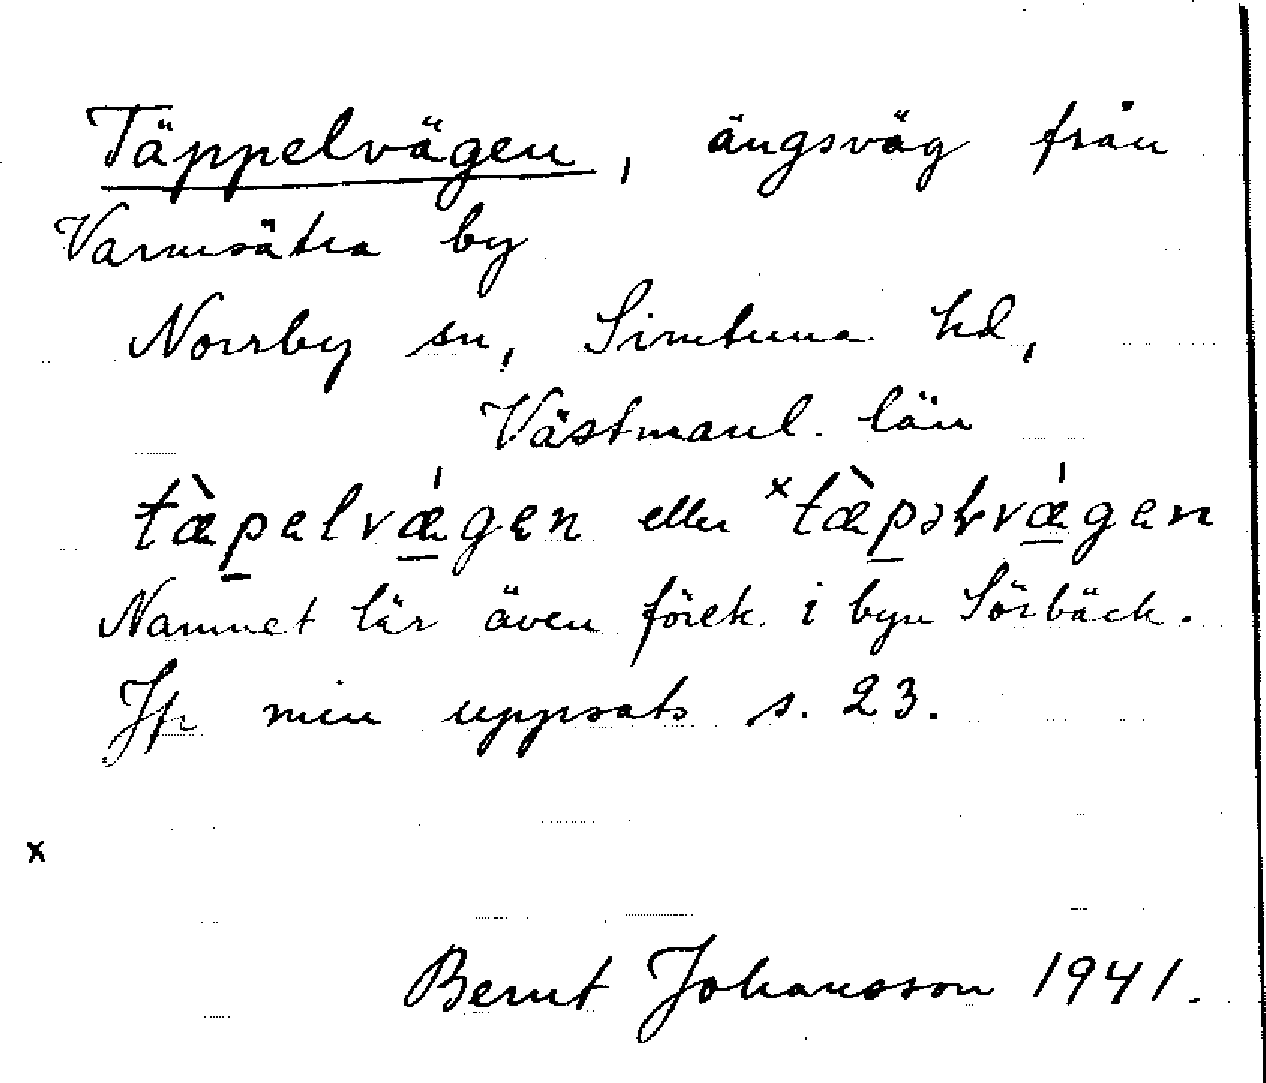 Täppelvägen, ängsväg från
Varmsätra by
Norrby sn, Simtuna hd,
Västmanl. län
tæ̀pelvǽgen eller ˣtæ̀pəłvǽgen
Namnet lär även förek. i byn Sörbäck.
Jfr min uppsats s. 23.
x
Bernt Johansson 1941.